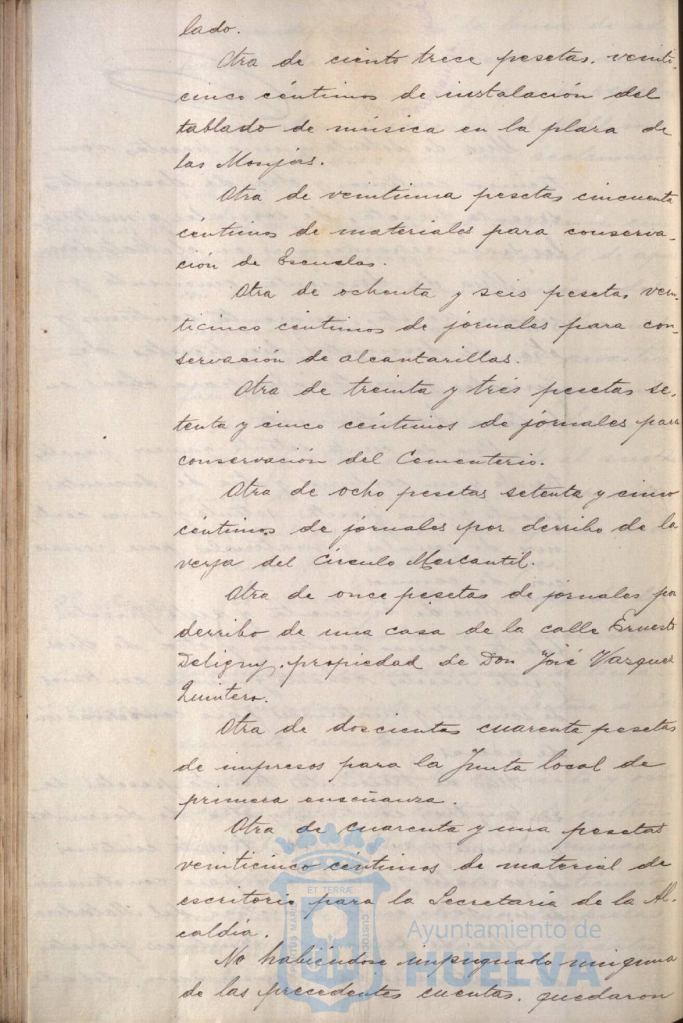 lado.
Otra de ciento trece pesetas, veinti-
cinco céntimos de instalación del
tablado de música en la plaza de
las Monjas.
Otra de veintiuna pesetas cincuenta
céntimos de materiales para conserva-
ción de Escuelas.
Otra de ochenta y seis pesetas, vein-
ticinco céntimos de jornales para con-
servación de alcantarillas.
Otra de treinta y tres pesetas se-
tenta y cinco céntimos de jornales para
conservación del Cementerio.
Otra de ocho pesetas setenta y cinco
céntimos de jornales por derribo de la
verja del Círculo Mercantil.
Otra de once pesetas de jornales por
derribo de una casa de la calle Ernesto
Deligny, propiedad de Don José Vazquez
Quintero.
Otra de doscientas cuarenta pesetas
de impresos para la Junta local de
primera enseñanza.
Otra de cuarenta y una pesetas
veinticinco céntimos de material de
escritorio para la Secretaría de la Al-
caldía.
No habiéndose impugnado ninguna
de las precedentes cuentas, quedaron
ET TERRÆ
PORTUS MARIS
CUSTODIA
Ayuntamiento de
HUELVA